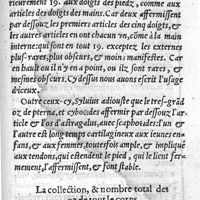 rieurement 19. aux doigts des piedz, comme aux
articles des doigts des mains. Car deux affermissent
par dessouz les premiers articles des cinq doigts, &
les autres articles en ont chacun vn, cõme à la main
interne: qui sont en tout 19. exceptez les externes
plus-rares, plus obscurs, & moins manifestes. Car
en haut ou il n'y en a point, ou ilz sont rares, &
mesmes obscurs. Cy dessus nous auons escrit l'vsage
d'iceux.
Outre ceux-cy, Syluius adiouste que le tres-grãd
oz de pterna, et cyboides affermir par dessouz l'arti-
cle & l'os d'astragalus, auec scaphoides: l'un &
l'autre est long temps cartilagineux aux ieunes en-
fans, & aux femmes, toutesfois ample, & impliqué
aux tendons, qui estendent le pied, qui le lient ferme-
ment, l'affermissent, & font stable.
La collection, & nombre total des
oz de tout le corps